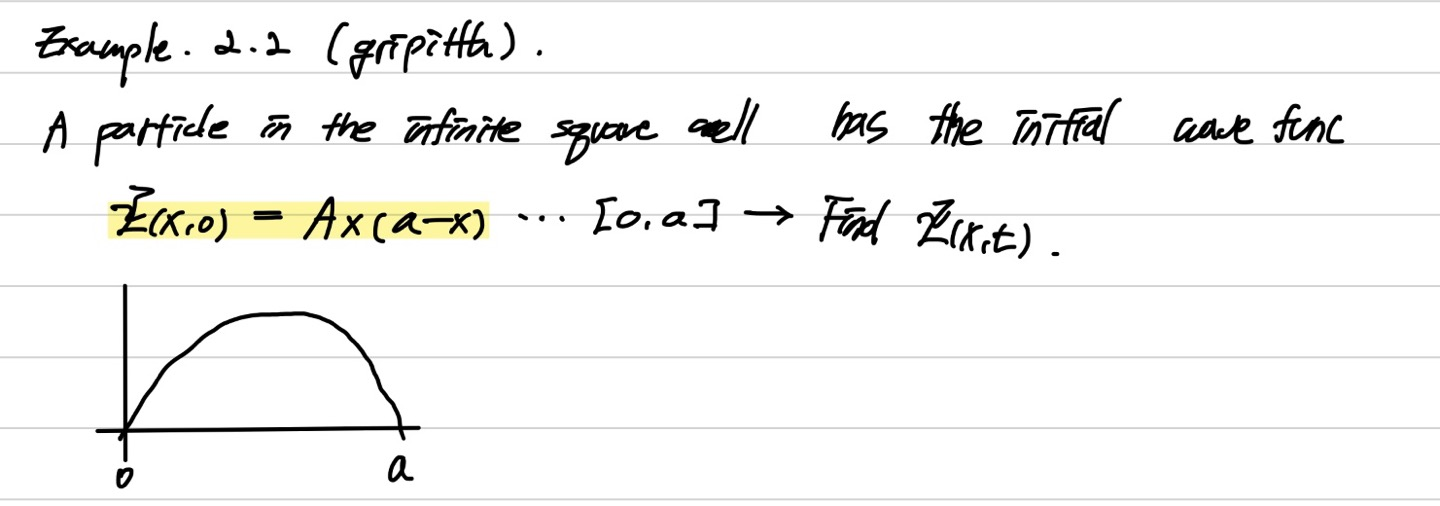 Example. 2.2 (gripitth).
A particle in the infinite square well has the initial wave func
Ψ(x,0) = Ax(a-x) ... [0,a] → Find Ψ(x,t).
0 a